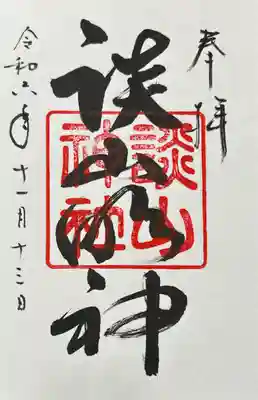 奉拝
談山明神
談山神社
令和六年十一月十三日